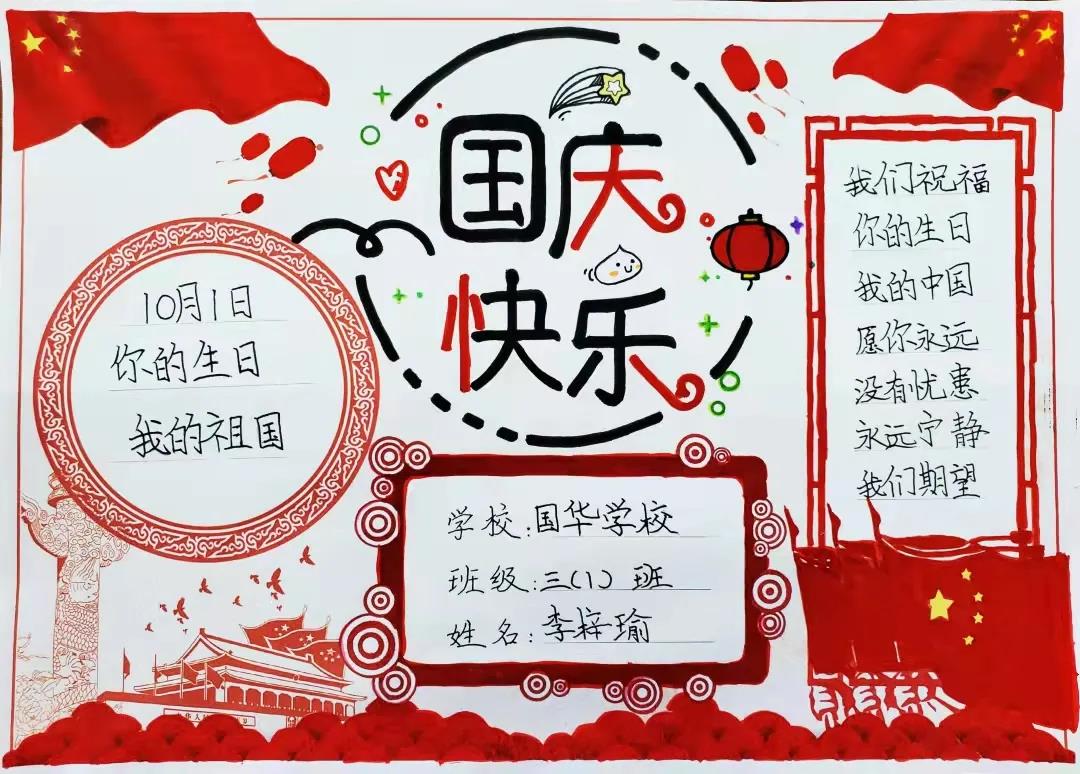 国庆
快乐
10月1日
你的生日
我的祖国
学校:国华学校
班级:三(1)班
姓名:李梓瑜
我们祝福
你的生日
我的中国
愿你永远
没有忧患
永远宁静
我们期望